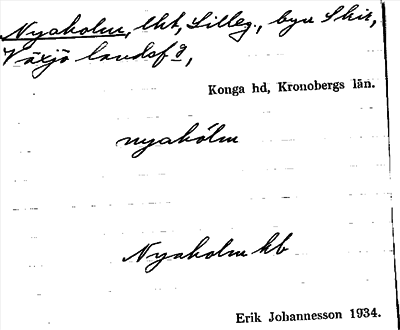 Nyaholm, lht, Lilleg., byn Skir,
Växjö landsfg,
Konga hd, Kronobergs län.
nyahólm
Nyaholm kb
Erik Johannesson 1934.